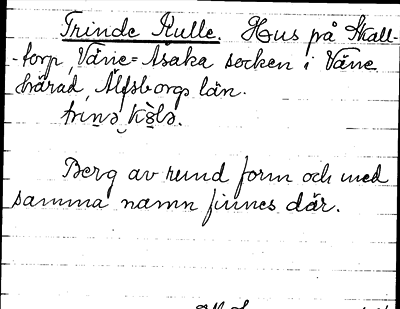 Trinde Kulle. Hus på Skall-
-torp, Väne=Åsaka socken i Väne
härad, Älfsborgs län.
Berg av rund form och med
samma namn finnes där.